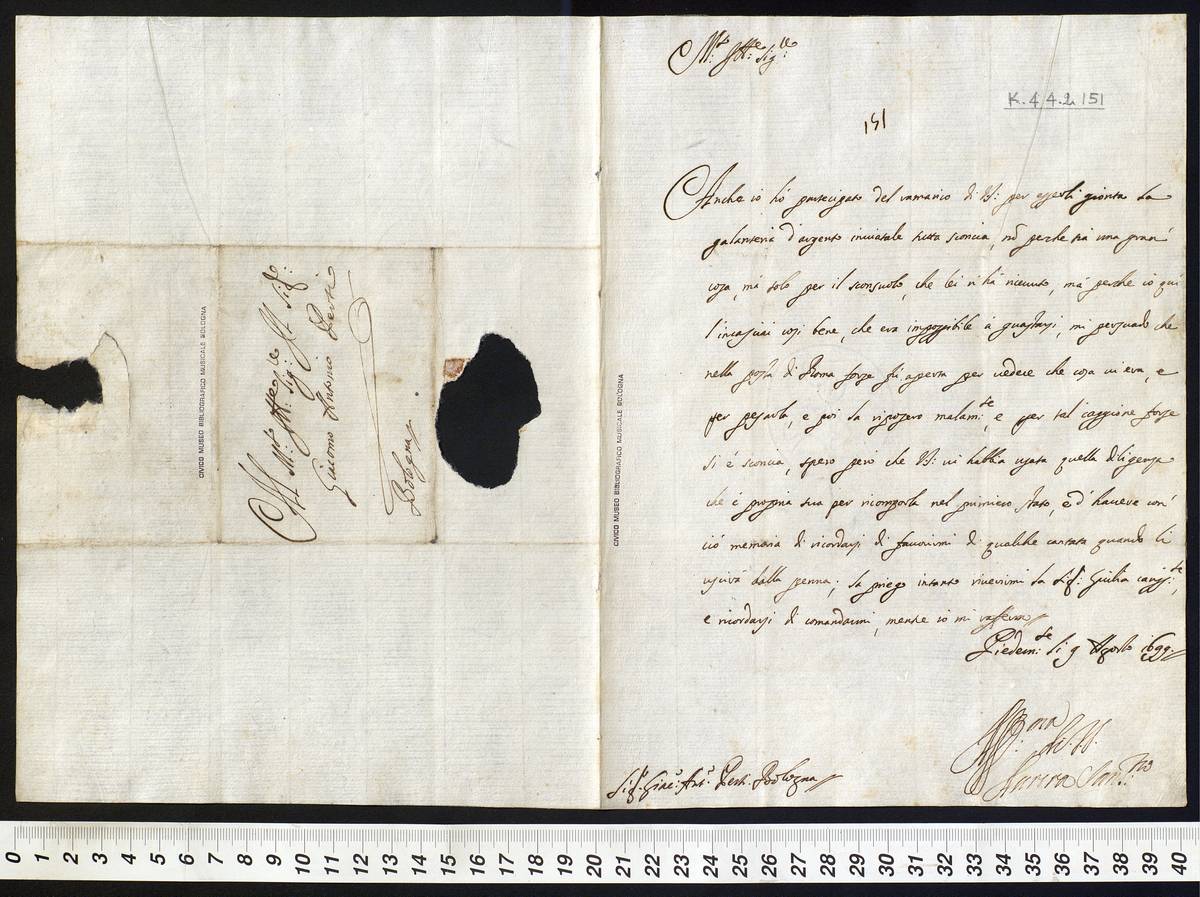 Al Mto: Illre: Sig: Il Sig:
Giacomo Antonio Perti
Bologna
CIVICO MUSEO BIBLIOGRAFICO MUSICALE BOLOGNA
CIVICO MUSEO BIBLIOGRAFICO MUSICALE BOLOGNA
K.44.2.151
151
Anche io hò partecipato del ramarico di VS: per esserli gionta la
galanteria d'argento inviatale tutta sconcia, nō perche sia una gran
cosa, mà solo per il sconsuolo, che lei n'hà ricevuto, mà perche io qui
l'incassai così bene, che era impossibile à guastarsi, mi persuado che
nella posta di Roma forse fù aperta per vedere che cosa vi era, e
per pesarla, e poi la riposero malamte, e per tal caggione forse
si è sconcia, spero però che VS: vi habbia usata quella diligenza
che è propria sua per ricomporla nel primiero stato, ed' havere con
ciò memoria di ricordarsi di favorirmi di qualche cantata quando li
uscirà dalla penna; la priego intanto riverirmi la Sigra: Giulia
e ricordarsi di comandarmi, mentre io mi rassegno
Piedemte: li 9 Agosto 1699.
Di VS.
Sigr: Giac: Ant: Perti Bologna